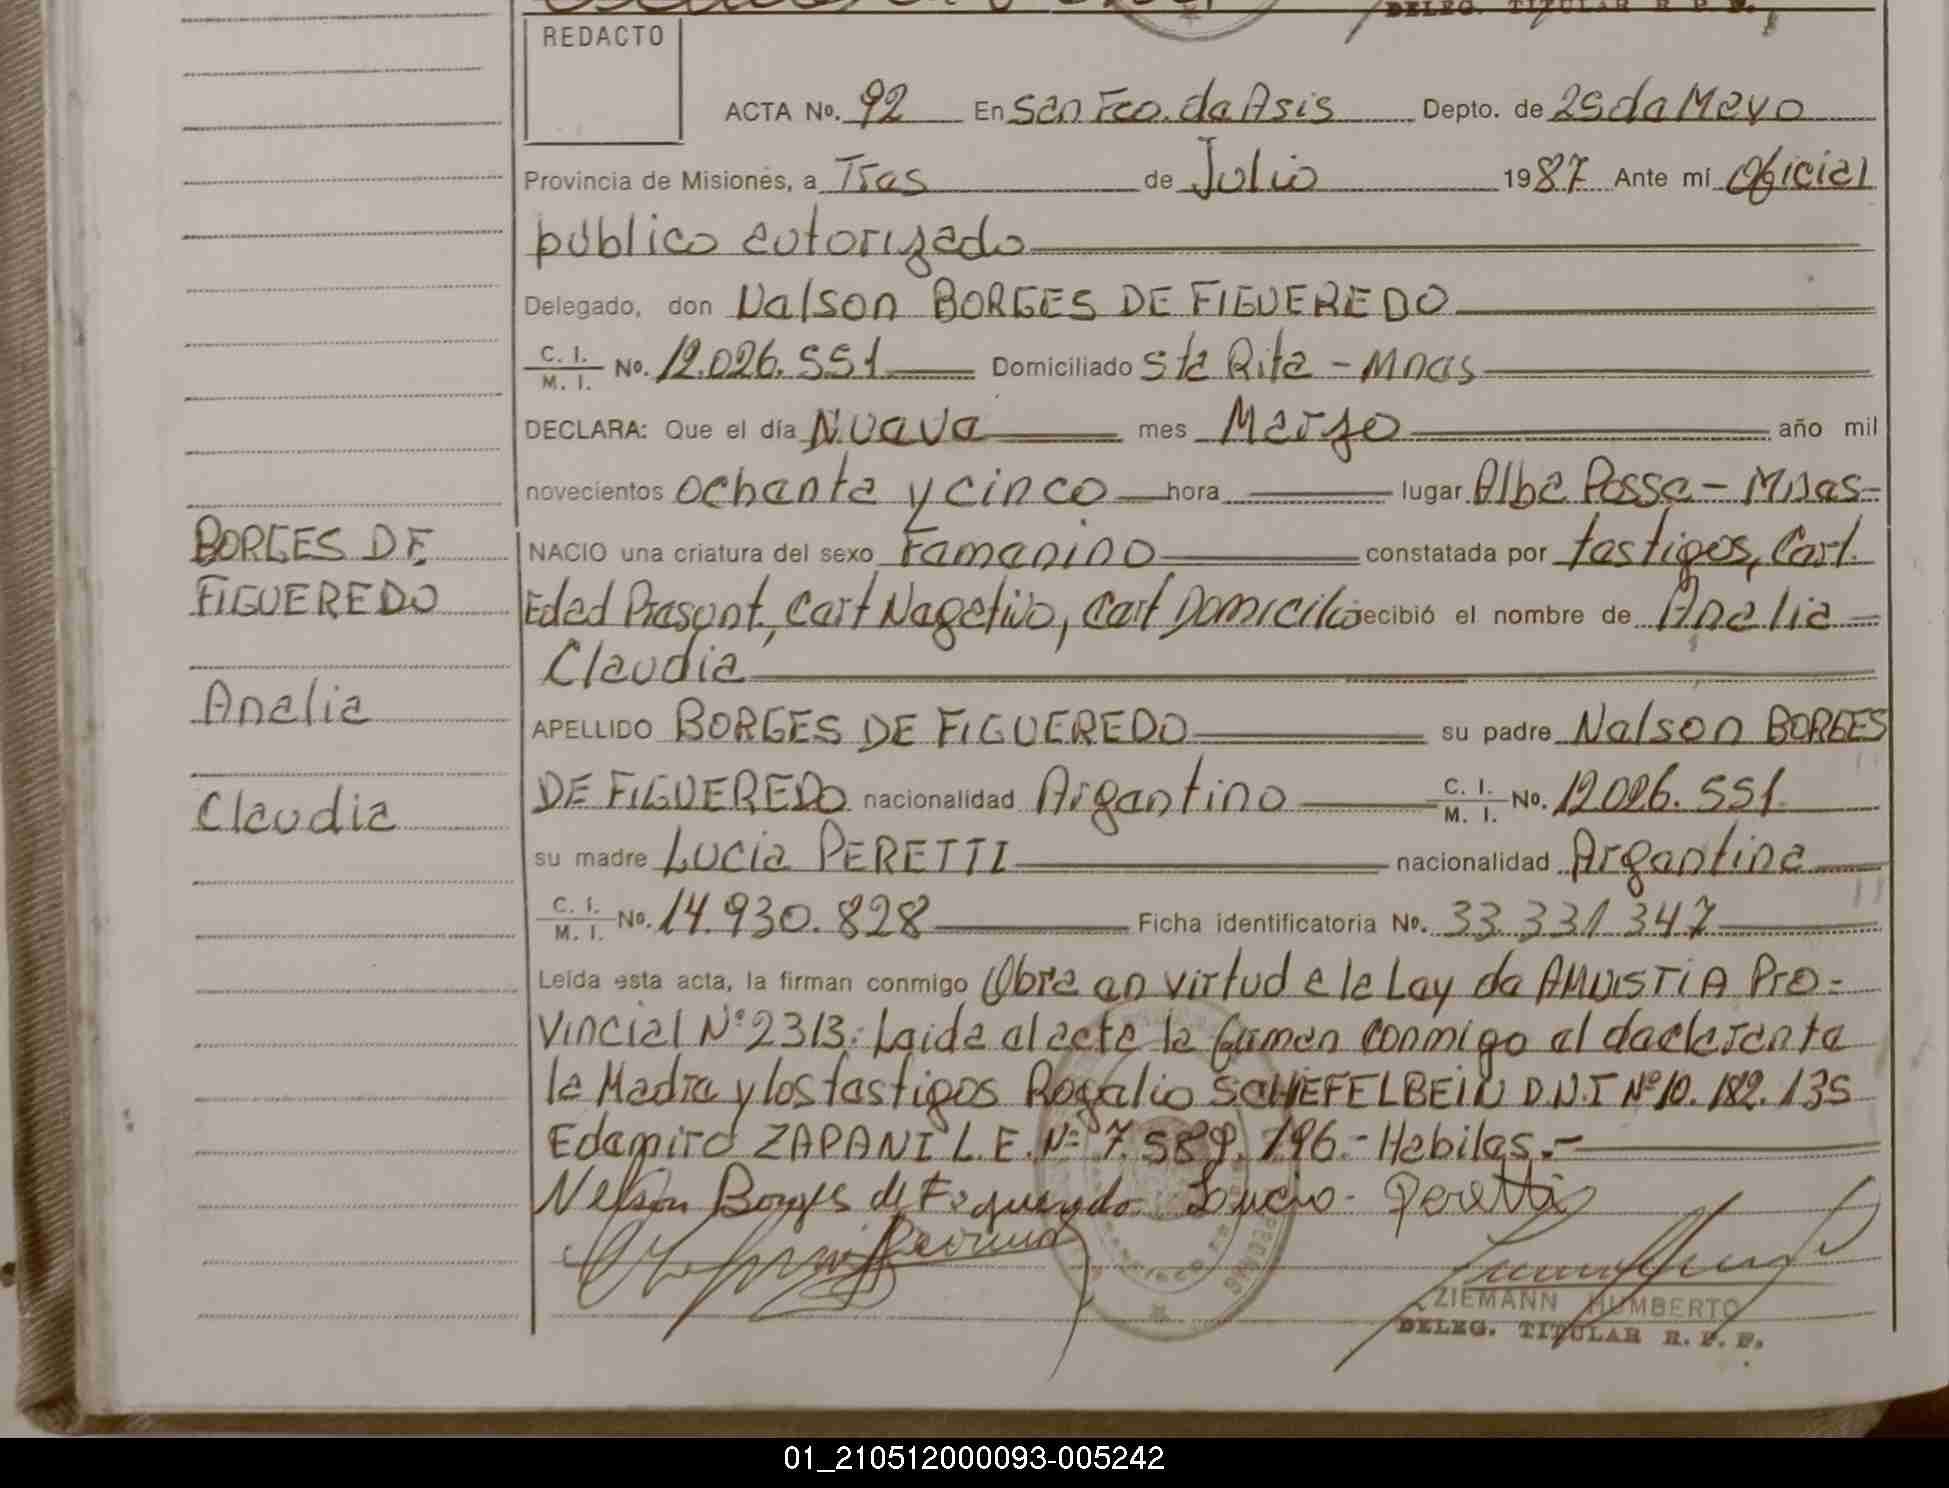 DELEG. TITULAR R. P. P.
REDACTO
ACTA No. 92 En San Fco. de Asis Depto. de 25 de Mayo
Provincia de Misiones, a Tres de Julio 1987 Ante mí Oficial
público autorizado
Delegado, don Nelson BORGES DE FIGUEREDO
C. I. / M. I. No. 12.026.551 Domiciliado Sta Rita - Mnes
DECLARA: Que el día Nueve mes Marzo año mil
novecientos ochenta y cinco hora lugar Alba Posse - Mnes -
NACIO una criatura del sexo Femenino constatada por testigos, Cert.
Edad Presunt., Cert Negativo, Cert Domicilio recibió el nombre de Analia
Claudia
APELLIDO BORGES DE FIGUEREDO su padre Nelson BORGES
DE FIGUEREDO nacionalidad Argentino C. I. / M. I. No. 12026.551
su madre Lucia PERETTI nacionalidad Argentina
C. I. / M. I. No. 14.930.828 Ficha identificatoria No. 33.331.347
Leída esta acta, la firman conmigo Obra en virtud a la Ley de AMNISTIA Pro-
vincial Nº 2313: Leida el acta la firman conmigo el declarante
la Madre y los testigos Rogelio SCHEFELBEIN D.N.I Nº 10.182.135
Edemiro ZAPANI L.E. Nº 7.589.196.- Habiles.-
Nelson Borges de Figueredo Lucia Peretti
ZIEMANN HUMBERTO
DELEG. TITULAR R. P. P.
BORGES DE
FIGUEREDO
Analia
Claudia
01_210512000093-005242